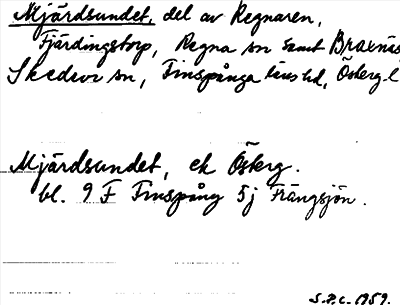 Mjärdsundet, del av Regnaren,
Fjärdingstorp, Regna sn samt
Skedevi sn, Finspånga läns hd, Österg. l
Mjärdsundet, ek Österg.
bl. 9 F Finspång 5j Trängsjön.
S.P.C. 1959.